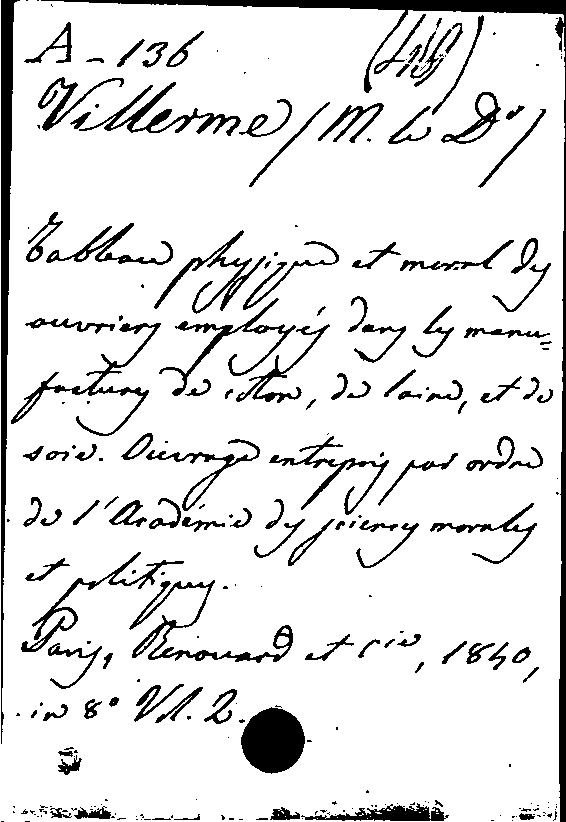 A - 136
Villermé (M. le Dr)
Tableau physique et moral des
ouvriers employés dans les manu=
factures de coton, de laine, et de
soie. Ouvrage entrepris par ordre
de l'Académie des sciences morales
et politiques.
Paris, Renouard et Cie, 1840,
in 8° Vol. 2.